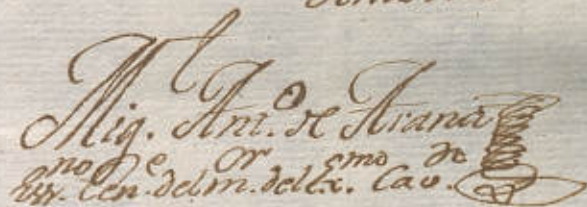 Mig.l Ant.o de Arana
ess.no Ten.e del m.or del Ex.mo Cav.do